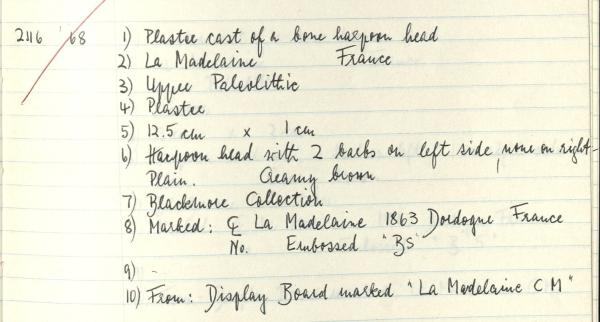 2116 '68 1) Plaster cast of a bone harpoon head
2) La Madelaine France
3) Upper Paleolithic
4) Plaster
5) 12.5 cm x 1 cm
6) Harpoon head with 2 barbs on left side, none on right-
Plain. Creamy brown
7) Blackmore Collection
8) Marked: La Madelaine 1863 Dordogne France
No. Embossed "BS"
9) -
10) From: Display Board marked "La Madelaine C M"